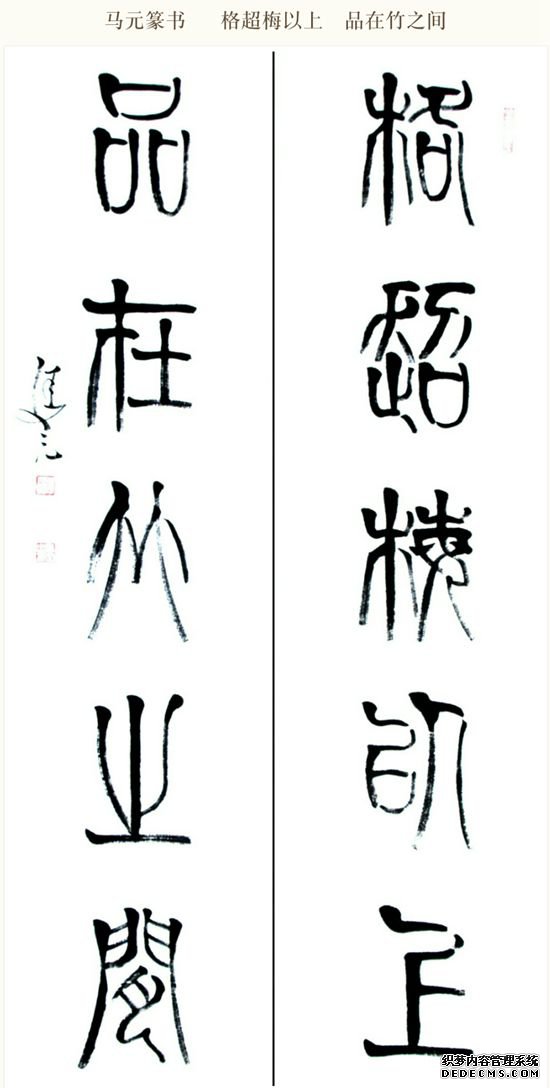 马元篆书 格超梅以上 品在竹之间
格超梅以上
品在竹之间
马元
织梦内容管理系统
DEDECMS.COM